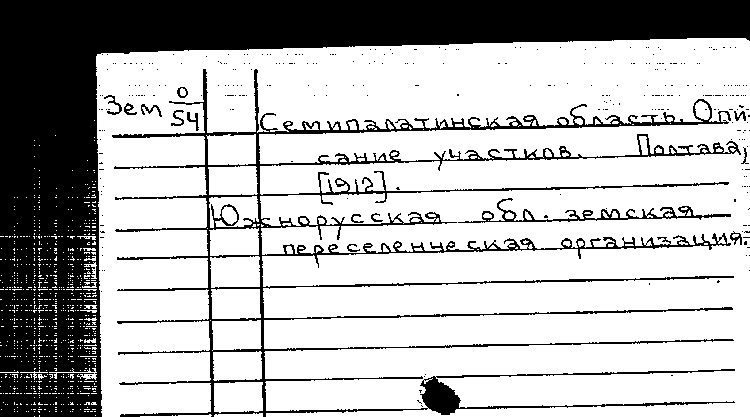 Зем О/54
Семипалатинская область. Опи-
сание участков. Полтава,
[1912].
Южнорусская обл. земская
переселенческая организация.